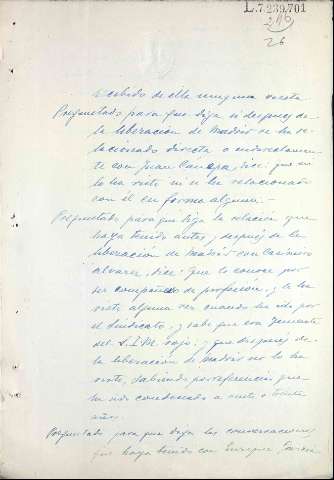 L.7.239.701
26
recibido de ella ninguna carta
Preguntado para que diga si despues de
la liberación de Madrid se ha re-
lacionado directa o indirectamen-
te con Juan, dice: que no
lo ha visto ni se ha relacionado
con él en forma alguna.-
Preguntado para que diga la relación que
haya tenido antes y despues de la
liberación de Madrid con Casimiro
Alvarez, dice: Que lo conoce por
ser compañero de profesion, y lo ha
visto alguna vez cuando ha ido por
el Sindicato, y sabe que era Teniente
del S.I.M. rojo, y que despues de
la liberación de Madrid no lo ha
visto, sabiendo por referencia que
ha sido condenado a veinte o treinta
años.
Preguntado para que diga las conversaciones
que haya tenido con Enrique